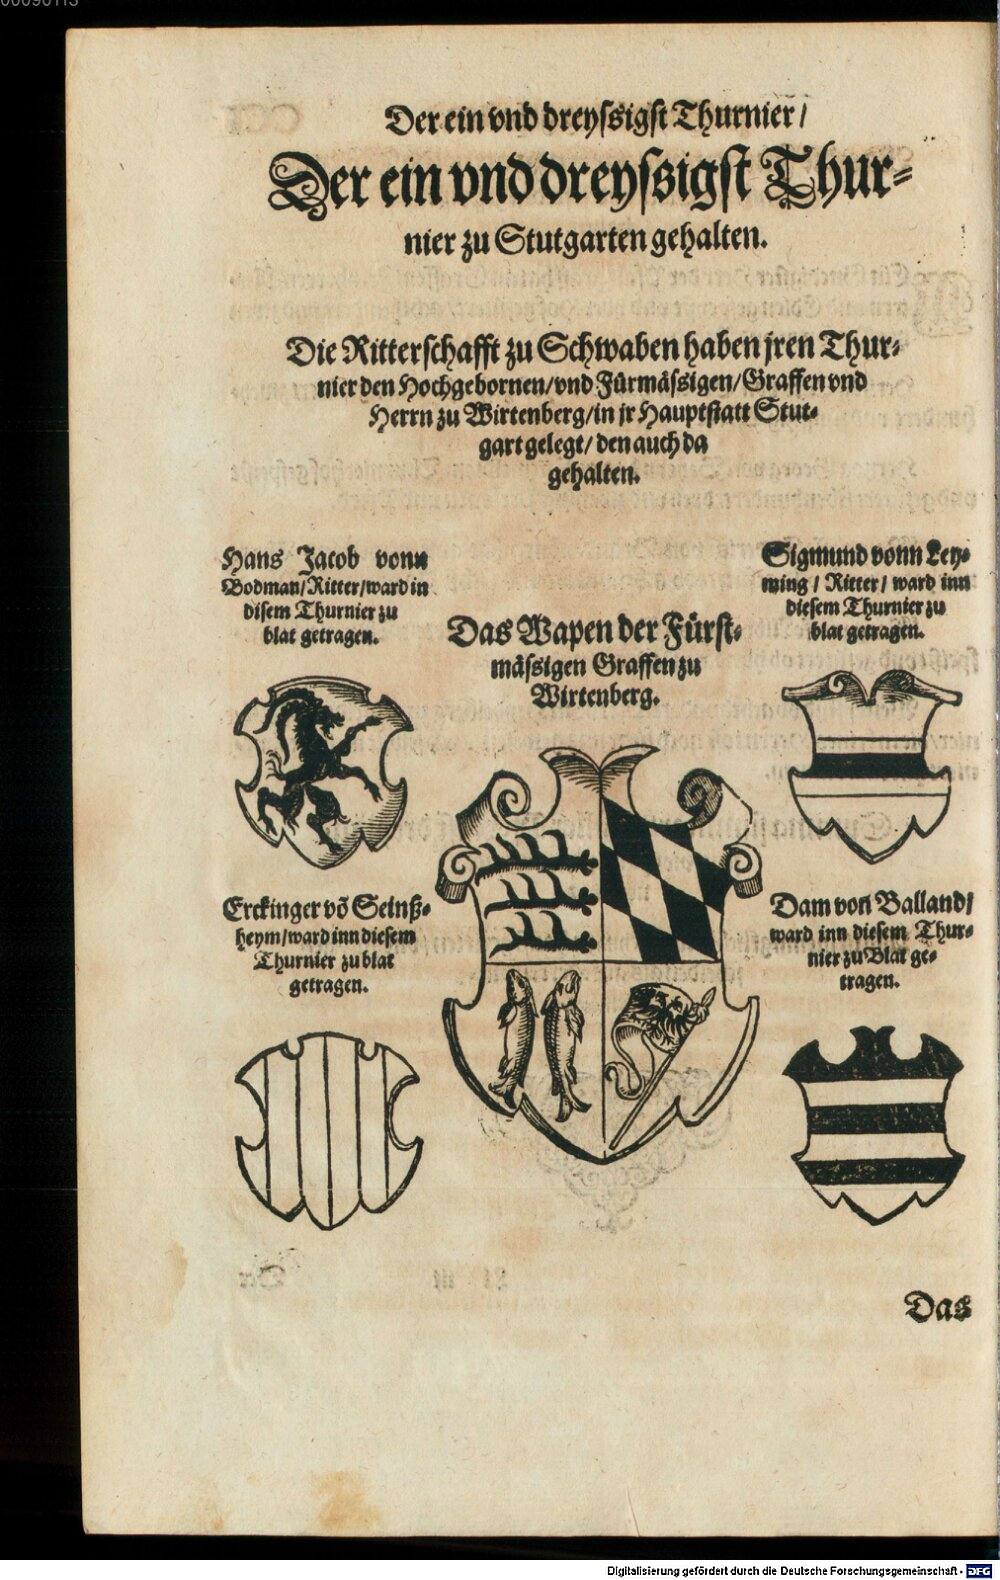 00090113
Der ein vnd dreyssigst Thurnier/
Der ein vnd dreyssigst Thur-
nier zu Stutgarten gehalten.
Die Ritterschafft zu Schwaben haben jren Thur-
nier den Hochgebornen/vnd Fürmässigen/Graffen vnd
Herrn zu Wirtenberg/in jr Hauptstatt Stut-
gart gelegt/den auch da
gehalten.
Hans Jacob vonn
Bodman/Ritter/ward in
disem Thurnier zu
blat getragen.
Sigmund vonn Ley-
ming/Ritter/ward inn
diesem Thurnier zu
blat getragen.
Das Wapen der Fürst-
mässigen Graffen zu
Wirtenberg.
Erckinger võ Seinß-
heym/ward inn diesem
Thurnier zu blat
getragen.
Dam von Balland/
ward inn diesem Thur-
nier zu Blat ge-
tragen.
Das
Digitalisierung gefördert durch die Deutsche Forschungsgemeinschaft - DFG